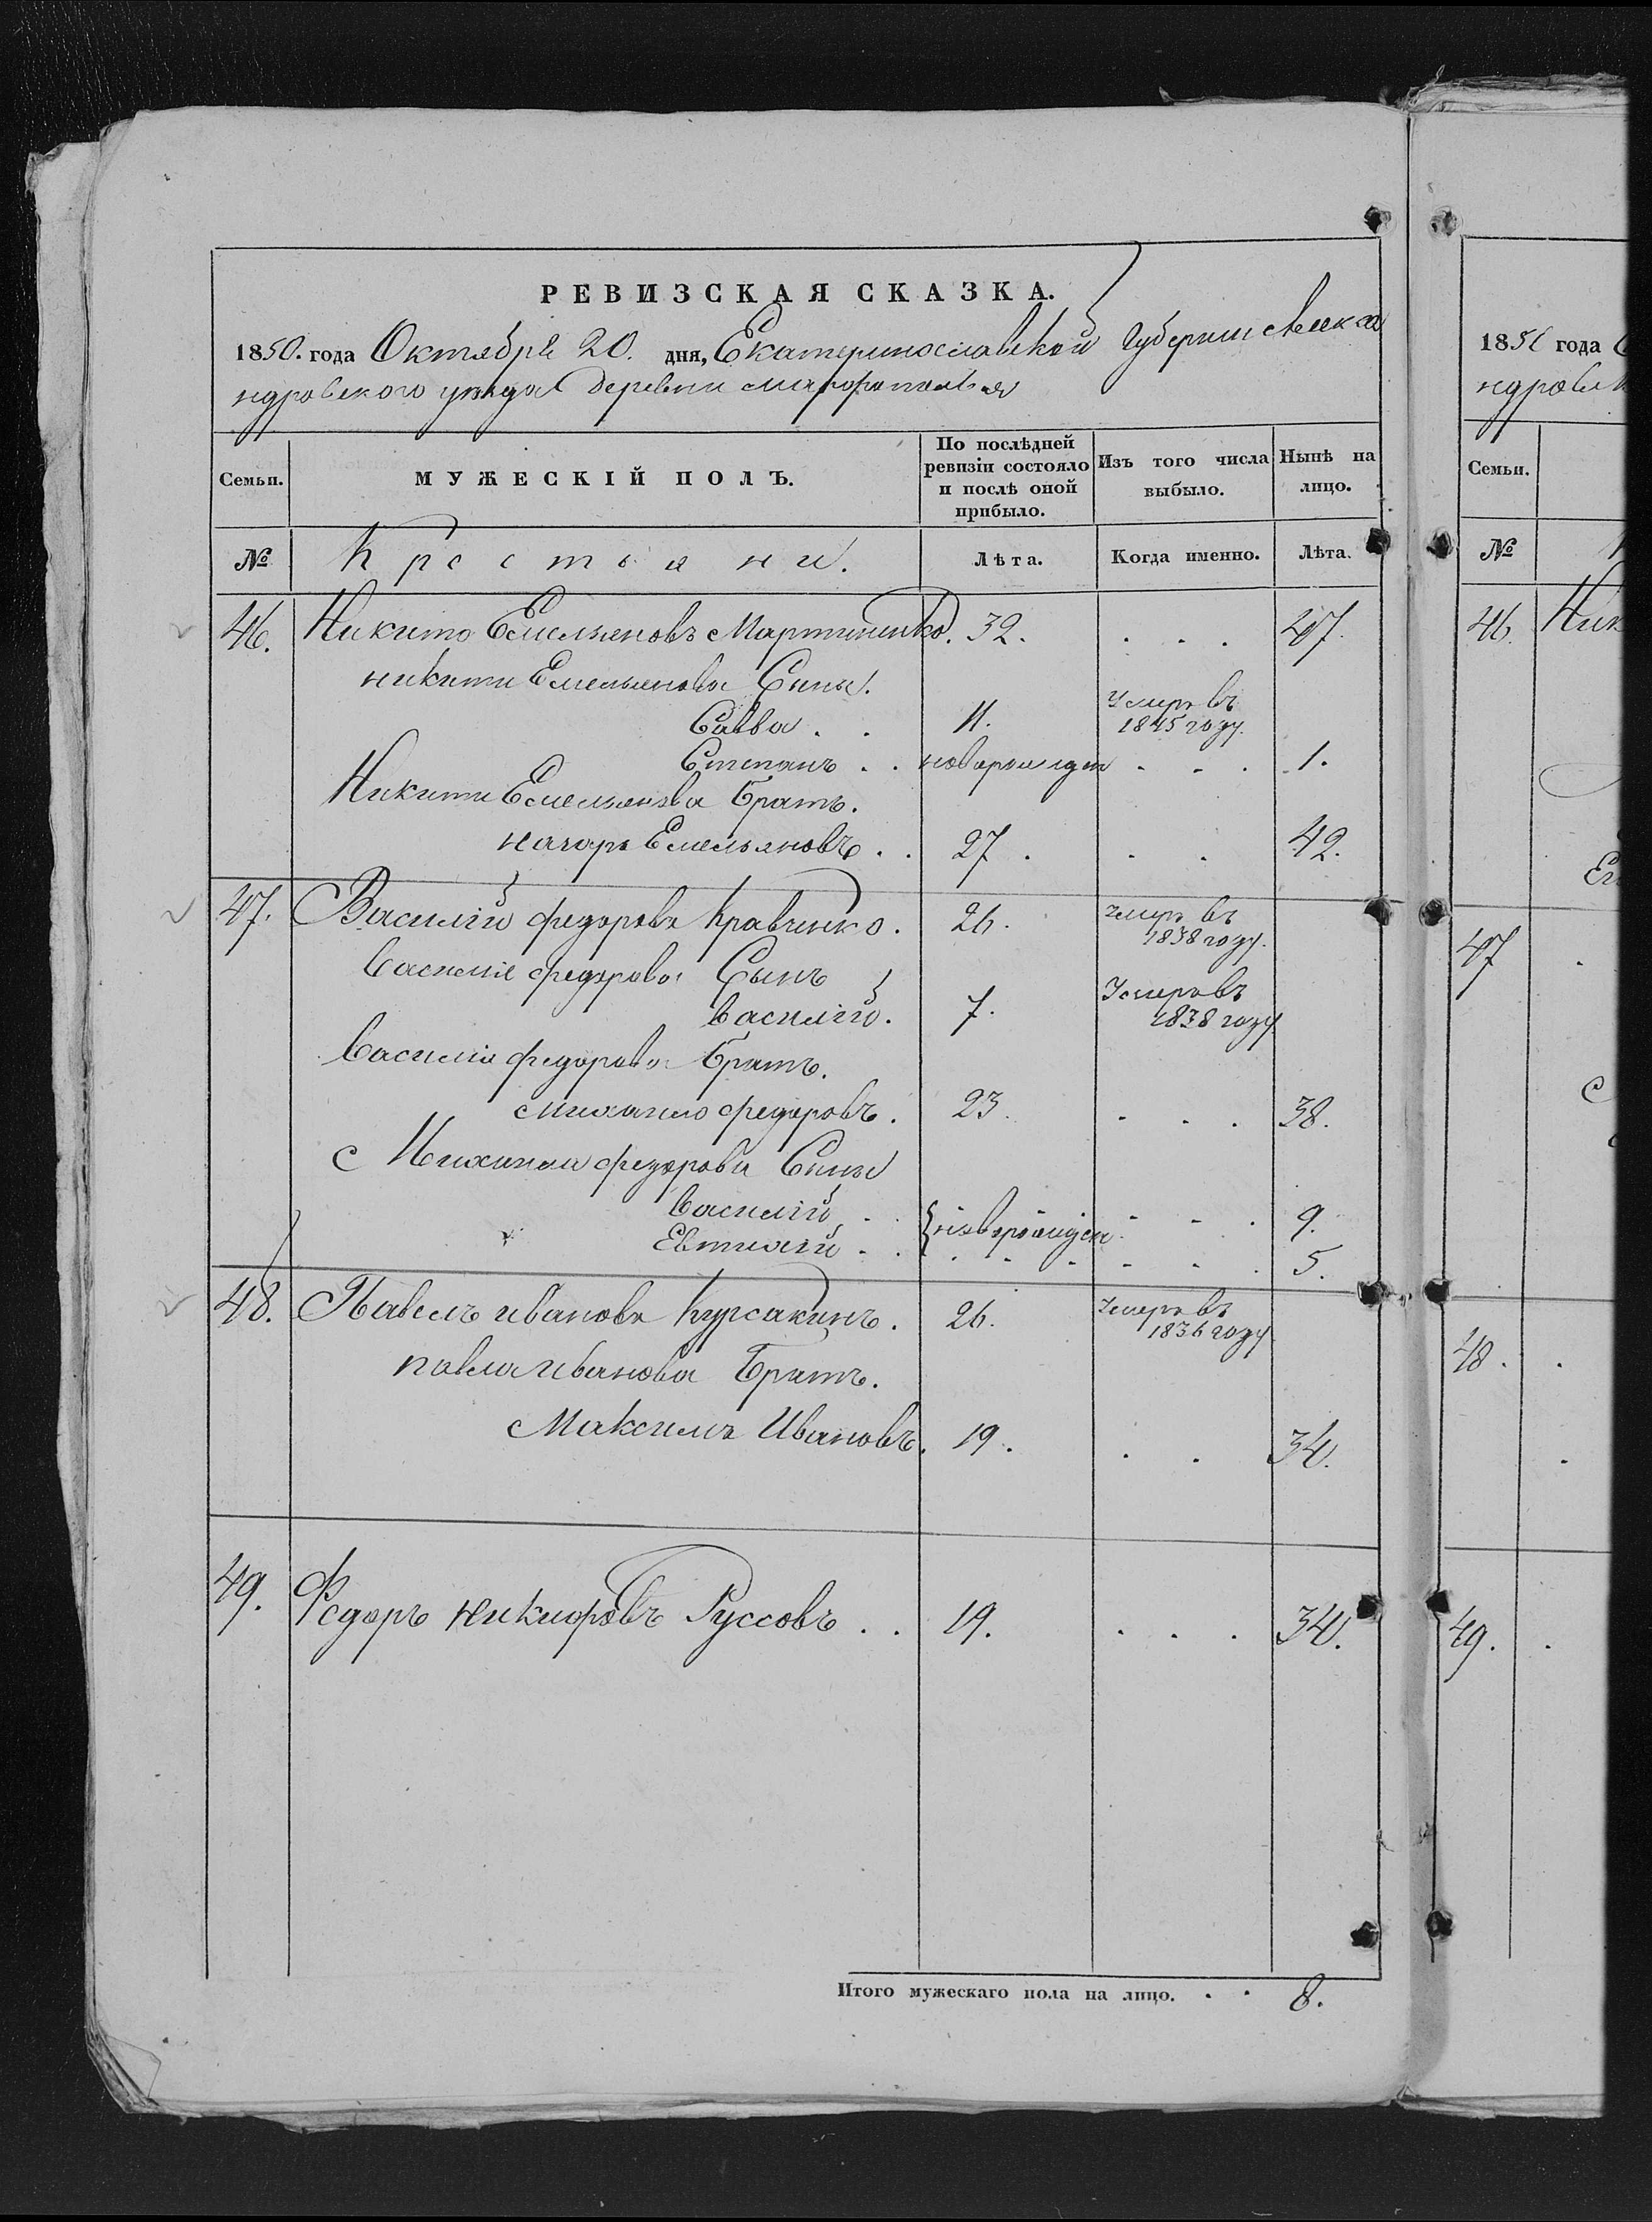 РЕВИЗСКАЯ СКАЗКА.
1850. года Октября 20. дня, Екатеринославской Губернии Алекса
ндровского уезда деревни
Семьи. МУЖЕСКІЙ ПОЛЪ. По послѣдней ревизіи состояло и послѣ оной прибыло. Изъ того числа выбыло. Нынѣ на лицо.
№ Крестьяни. Лѣта. Когда именно. Лѣта.
46. Никита Емельяновъ Мартиненко. 32. . . . 47.
никити Емельянова Сины.
Савва . . 11. Умеръ въ 1845 году.
Степанъ . . новорожден . . . 1.
Никити Емельянова Братъ.
назаръ Емельяновъ . . 27. . . 42.
47. Василій федоровъ Кравченко. 26. умеръ въ 1838 году.
Василія федорова Сынъ
василій. 7. Умеръ въ 1838 году
Василія федорова Братъ.
михаило федоровъ. 23. . . . 38.
Михаила федорова Сины
василій . . новорожден . . . 9.
Евтихій . . . . . . . . 5.
48. Павелъ ивановъ Курсакинъ. 26. Умеръ въ 1836 году
павла иванова Братъ.
Максимъ Ивановъ. 19. . . 34.
49. Федоръ никифоровъ Руссовъ . . 19. . . . 34.
Итого мужескаго пола на лицо. . . 8.
1850 года
ндровск
Семьи.
№
46. Ник
47
48.
49.